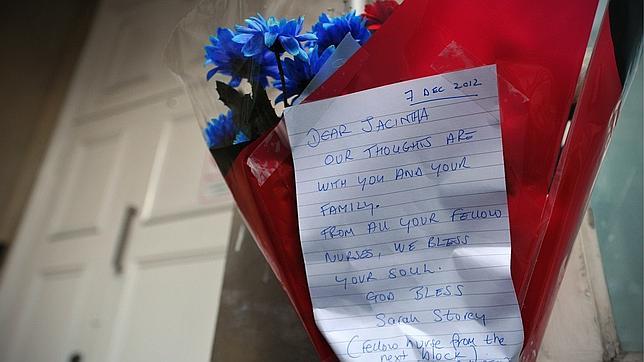 7 DEC 2012
DEAR JACINTHA
OUR THOUGHTS ARE
WITH YOU AND YOUR
FAMILY.
FROM ALL YOUR FELLOW
NURSES, WE BLESS
YOUR SOUL.
GOD BLESS
Sarah Storey
(fellow nurse from the
next block)